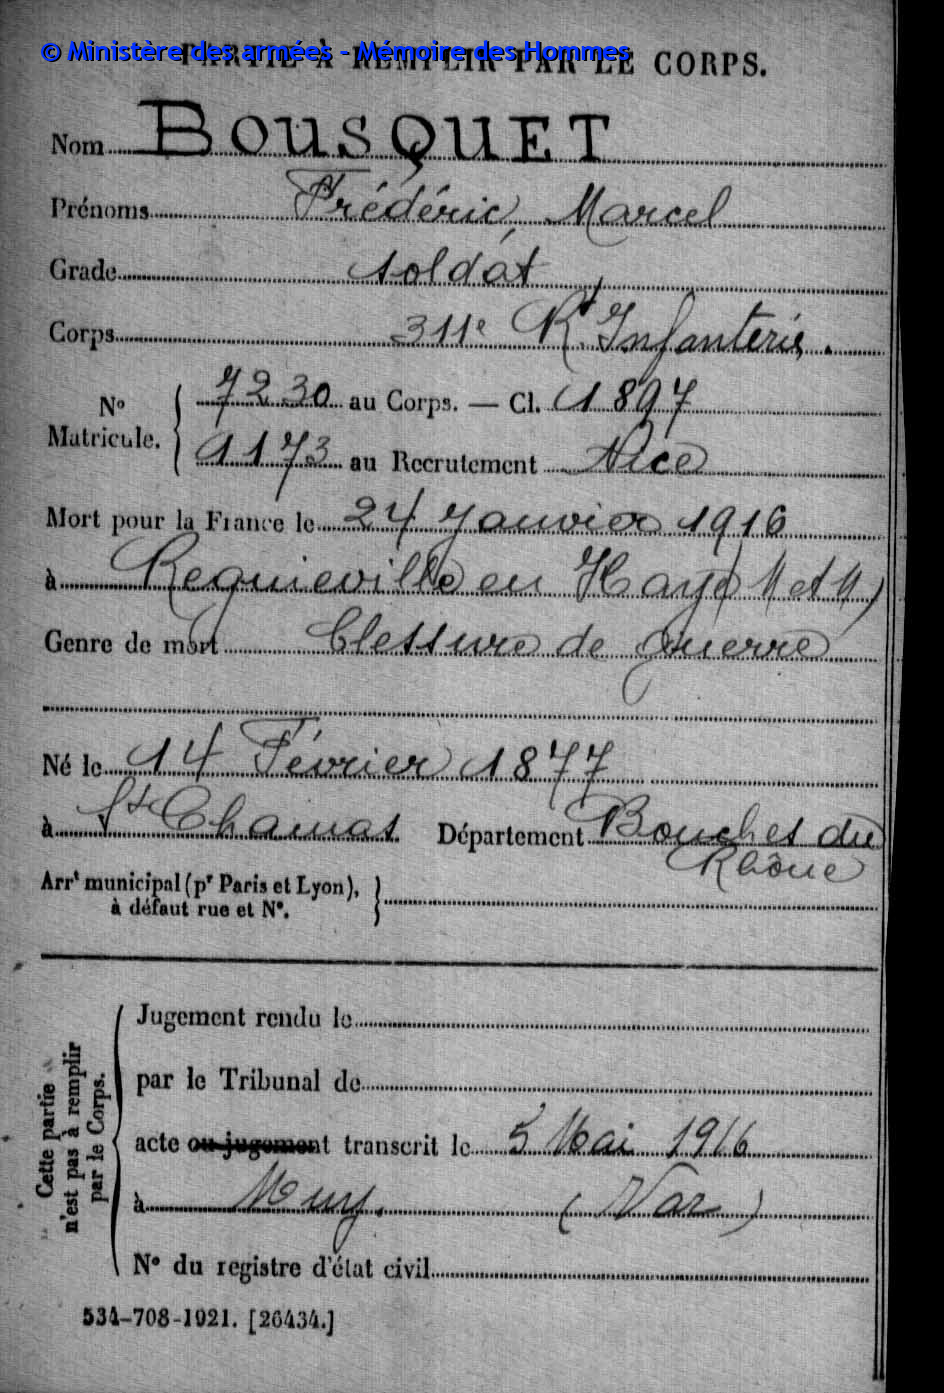 © Ministère des armées - Mémoire des Hommes
PARTIE À REMPLIR PAR LE CORPS.
Nom BOUSQUET
Prénoms Frédéric, Marcel
Grade soldat
Corps 311e Rt Infanterie.
No Matricule. 7230 au Corps. — Cl. 1897
1173 au Recrutement Nice
Mort pour la France le 24 Janvier 1916
à Regnieville en Haye (M et M)
Genre de mort blessure de guerre
Né le 14 Février 1877
à St Chamas Département Bouches du
Rhône
Arrt municipal (pr Paris et Lyon),
à défaut rue et No.
Cette partie
n'est pas à remplir
par le Corps.
Jugement rendu le
par le Tribunal de
acte ou jugement transcrit le 5 Mai 1916
à Muy. (Var)
No du registre d'état civil
534-708-1921. [26434.]